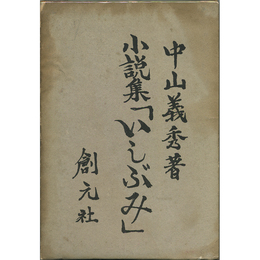 中山義秀著
小説集「いしぶみ」
創元社